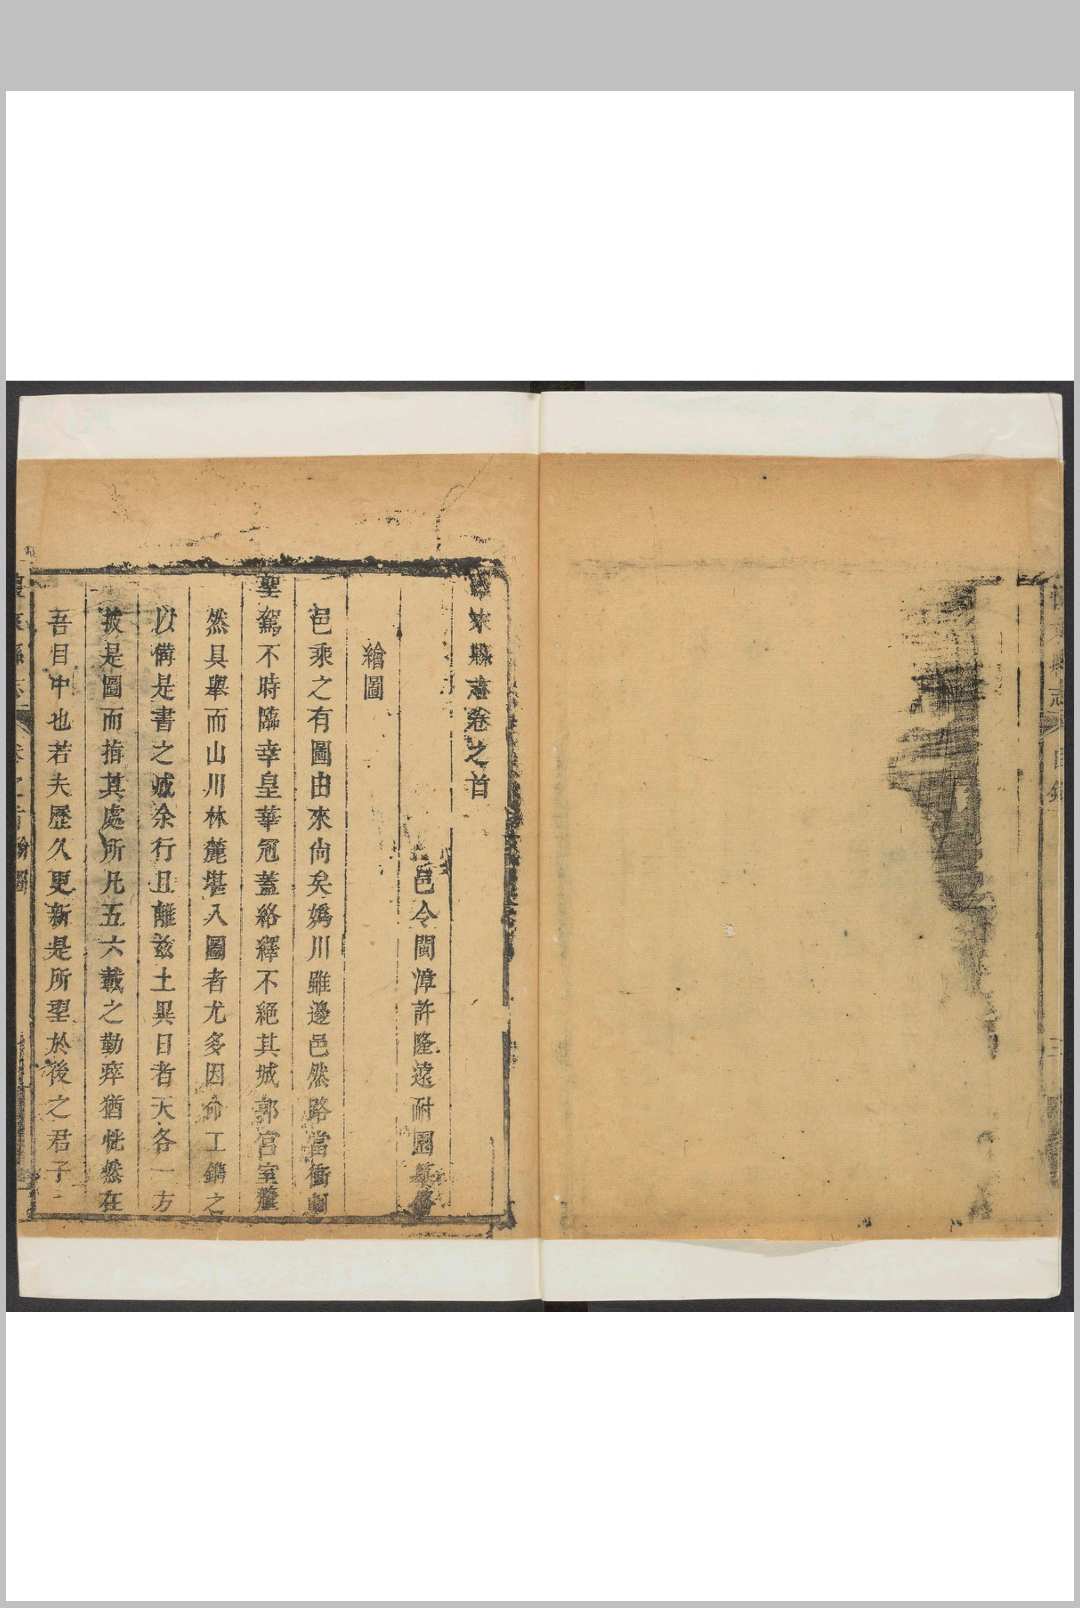 懷來縣志 目錄 三
懷來縣志卷之首
邑令閩漳許隆遠耐園纂修
繪圖
邑乘之有圖由來尚矣媯川雖邊邑然路當衝
聖駕不時臨幸皇華冠蓋絡繹不絕其城郭宮室釐
然具舉而山川林麓堪入圖者尤多因命工鐫之
以備是書之
余行且離兹土異日者天各一方
披是圖而指其處所凡五六載之勤瘁猶恍然在
吾目中也若夫歷久更新是所望於後之君子
懷來縣志 卷之首 繪圖